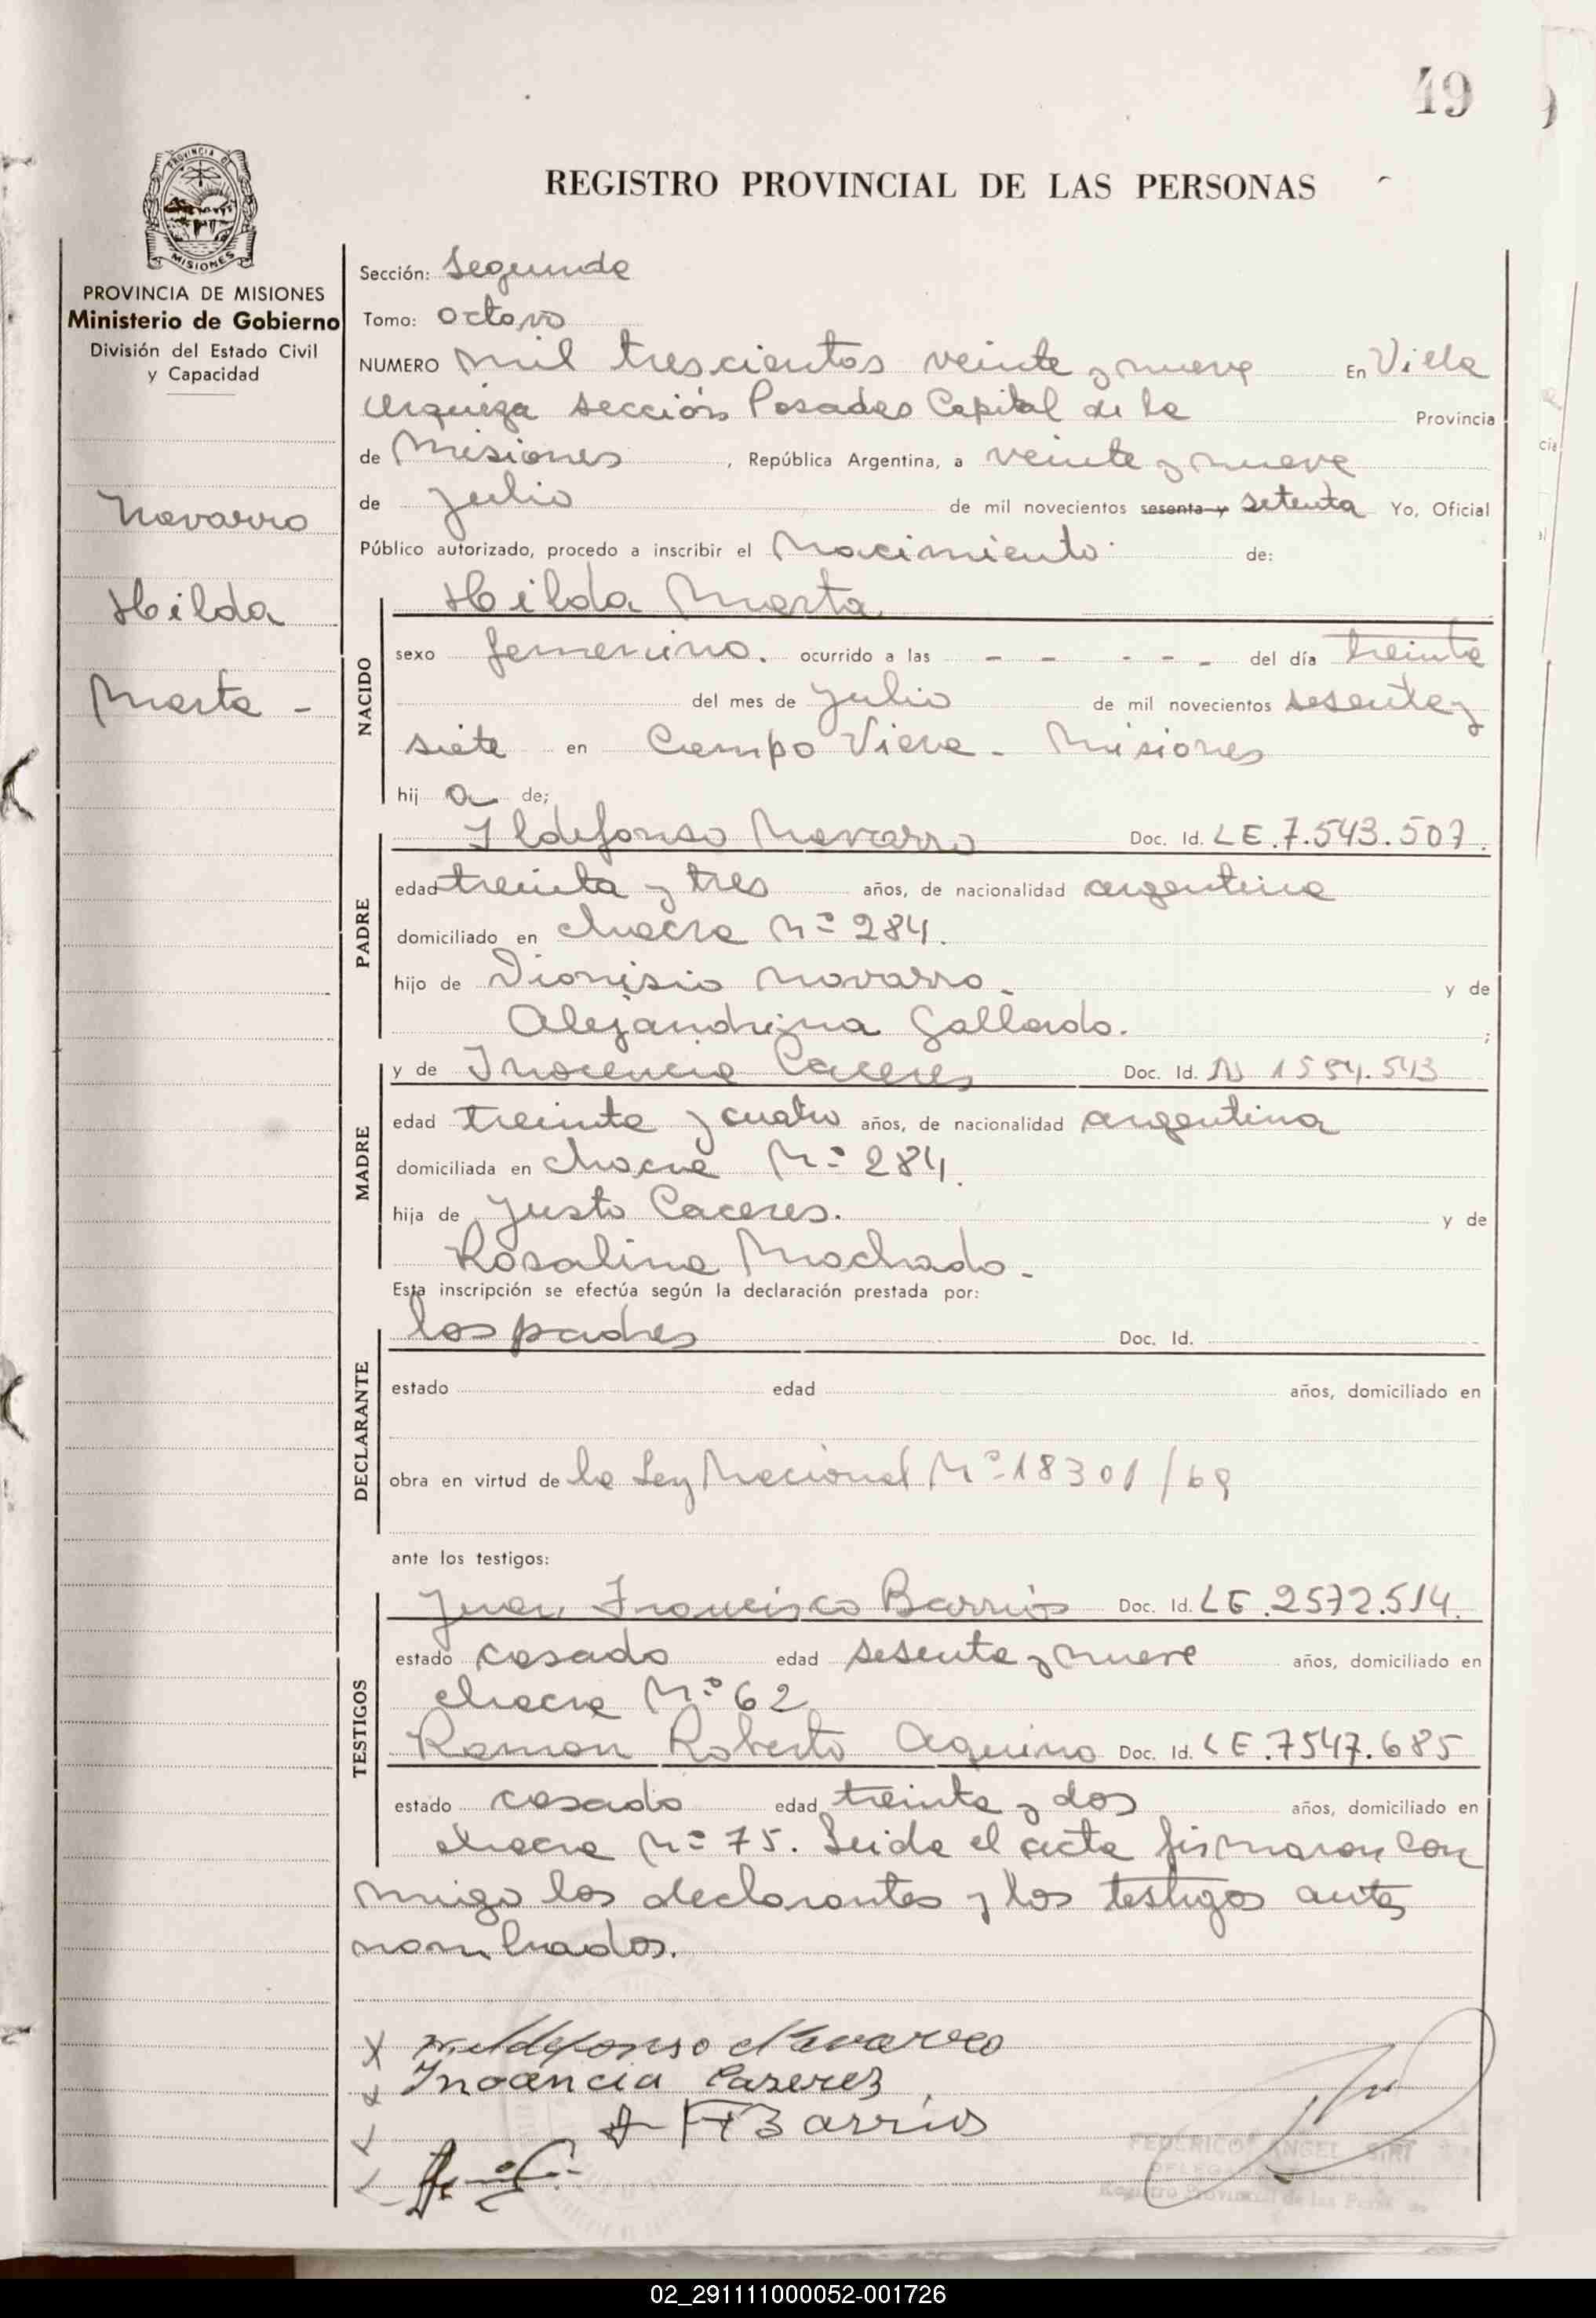 49
REGISTRO PROVINCIAL DE LAS PERSONAS
PROVINCIA DE MISIONES
PROVINCIA DE MISIONES
Ministerio de Gobierno
División del Estado Civil
y Capacidad
Navarro
Hilda
Marta -
Sección: Segunda
Tomo: Octavo
NUMERO mil trescientos veinte y nueve En Villa
Urquiza sección Posadas Capital de la Provincia
de Misiones, República Argentina, a veinte y nueve
de julio de mil novecientos sesenta y setenta Yo, Oficial
Público autorizado, procedo a inscribir el Nacimiento de:
NACIDO
Hilda Marta
sexo femenino. ocurrido a las - - - - - del día treinta
del mes de julio de mil novecientos sesenta y
siete en Campo Viera - Misiones
hij a de;
PADRE
Ildefonso Navarro Doc. Id. LE.7.543.507.
edad treinta y tres años, de nacionalidad argentina
domiciliado en chacra Nº 284.
hijo de Dionisio Navarro. y de
Alejandrina Gallardo. ;
MADRE
y de Inocencia Caceres Doc. Id. N 1594.543
edad treinta y cuatro años, de nacionalidad argentina
domiciliada en chacra Nº 284.
hija de Justo Caceres. y de
Rosalina Machado -
Esta inscripción se efectúa según la declaración prestada por:
DECLARANTE
los padres Doc. Id.
estado edad años, domiciliado en
obra en virtud de la Ley Nacional Nº 18301/69
ante los testigos:
TESTIGOS
Juan Francisco Barrios Doc. Id. LE.2572.514.
estado casado edad sesenta y nueve años, domiciliado en
chacra Nº 62
Ramon Roberto Aquino Doc. Id. LE.7547.685
estado casado edad treinta y dos años, domiciliado en
chacra Nº 75. Leida el acta firmaron con
migo los declarantes y los testigos antes
nombrados.
x Ildefonso Navarro
x Inoancia Caseres
x J F Barrios
FEDERICO ANGEL SIRI
Registro Provincial de las Personas
02_291111000052-001726